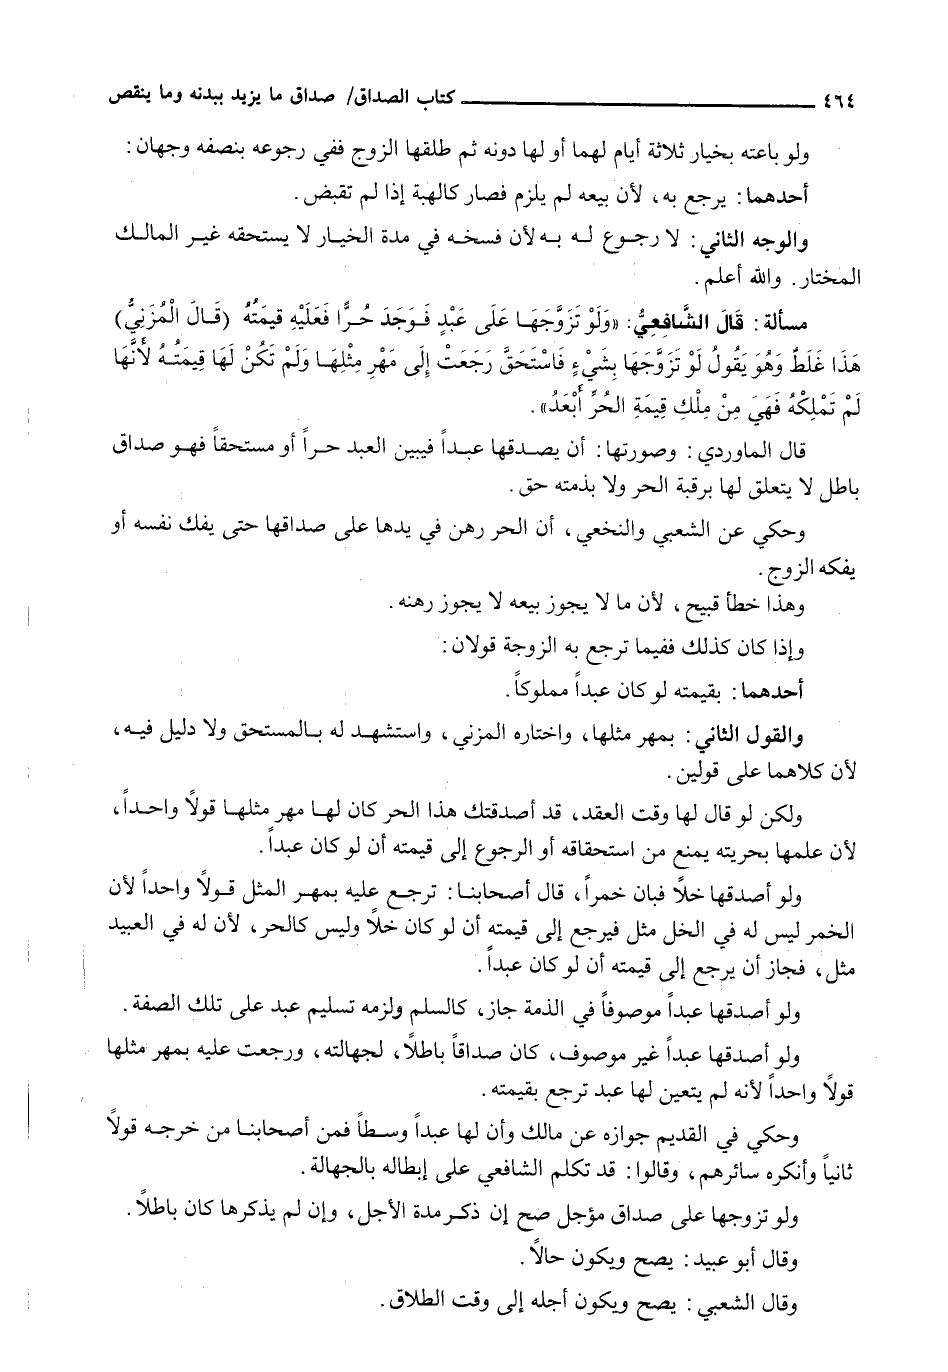 ٤٦٤ كتاب الصداق/ صداق ما يزيد ببدنه وما ينقص
ولو باعته بخيار ثلاثة أيام لهما أو لها دونه ثم طلقها الزوج ففي رجوعه بنصفه وجهان:
أحدهما: يرجع به، لأن بيعه لم يلزم فصار كالهبة إذا لم تقبض.
والوجه الثاني: لا رجوع له به لأن فسخه في مدة الخيار لا يستحقه غير المالك
المختار. والله أعلم.
مسألة: قَالَ الشَّافعِيُّ: «وَلَوْ تَزَوَّجَهَا عَلَى عَبْدٍ فَوَجَدَ حُرًّا فَعَلَيْهِ قِيمَتُهُ (قَالَ الْمُزَنِيُّ)
هَذَا غَلَطٌ وَهُوَ يَقُولُ لَوْ تَزَوَّجَهَا بِشَيْءٍ فَاسْتَحَقَّ رَجَعَتْ إِلَى مَهْرِ مِثْلِهَا وَلَمْ تَكُنْ لَهَا قِيمَتُهُ لأَنَّهَا
لَمْ تَمْلِكْهُ فَهَيَ مِنْ مِلْكِ قِيمَةِ الحُرِّ أَبْعَدُ».
قال الماوردي: وصورتها: أن يصدقها عبداً فيبين العبد حراً أو مستحقاً فهو صداق
باطل لا يتعلق لها برقبة الحر ولا بذمته حق.
وحكي عن الشعبي والنخعي، أن الحر رهن في يدها على صداقها حتى يفك نفسه أو
يفكه الزوج.
وهذا خطأ قبيح، لأن ما لا يجوز بيعه لا يجوز رهنه.
وإذا كان كذلك ففيما ترجع به الزوجة قولان:
أحدهما: بقيمته لو كان عبداً مملوكاً.
والقول الثاني: بمهر مثلها، واختاره المزني، واستشهد له بالمستحق ولا دليل فيه،
لأن كلاهما على قولين.
ولكن لو قال لها وقت العقد، قد أصدقتك هذا الحر كان لها مهر مثلها قولاً واحداً،
لأن علمها بحريته يمنع من استحقاقه أو الرجوع إلى قيمته أن لو كان عبداً.
ولو أصدقها خلاً فبان خمراً، قال أصحابنا: ترجع عليه بمهر المثل قولاً واحداً لأن
الخمر ليس له في الخل مثل فيرجع إلى قيمته أن لو كان خلاً وليس كالحر، لأن له في العبيد
مثل، فجاز أن يرجع إلى قيمته أن لو كان عبداً.
ولو أصدقها عبداً موصوفاً في الذمة جاز، كالسلم ولزمه تسليم عبد على تلك الصفة.
ولو أصدقها عبداً غير موصوف، كان صداقاً باطلاً، لجهالته، ورجعت عليه بمهر مثلها
قولاً واحداً لأنه لم يتعين لها عبد ترجع بقيمته.
وحكي في القديم جوازه عن مالك وأن لها عبداً وسطاً فمن أصحابنا من خرجه قولاً
ثانياً وأنكره سائرهم، وقالوا: قد تكلم الشافعي على إبطاله بالجهالة.
ولو تزوجها على صداق مؤجل صح إن ذكر مدة الأجل، وإن لم يذكرها كان باطلاً.
وقال أبو عبيد: يصح ويكون حالاً.
وقال الشعبي: يصح ويكون أجله إلى وقت الطلاق.